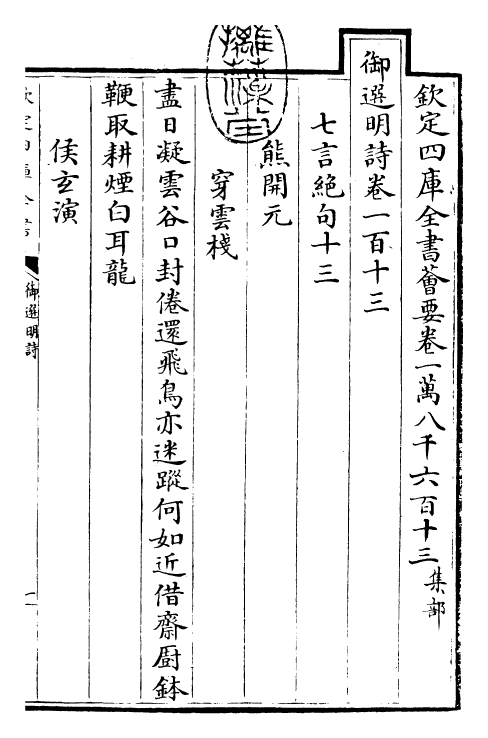 欽定四庫全書薈要卷一萬八千六百十三 集部
御選明詩卷一百十三
七言絶句十三
熊開元
穿雲棧
盡日凝雲谷口封倦還飛鳥亦迷蹤何如近借齋厨鉢
鞭取耕煙白耳龍
侯玄演
欽定四庫全書
御選明詩
一